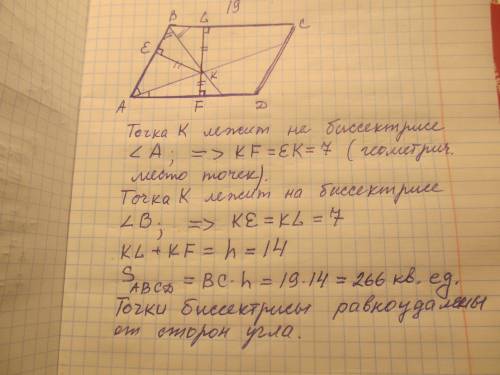 19
B L C
E
K
A F D
Точка K лежит на биссектрисе
∠A; => KF = EK = 7 (геометрич.
место точек).
Точка K лежит на биссектрисе
∠B; => KE = KL = 7
KL + KF = h = 14
S ABCD = BC · h = 19 · 14 = 266 кв. ед.
Точки биссектрисы равноудалены
от сторон угла.